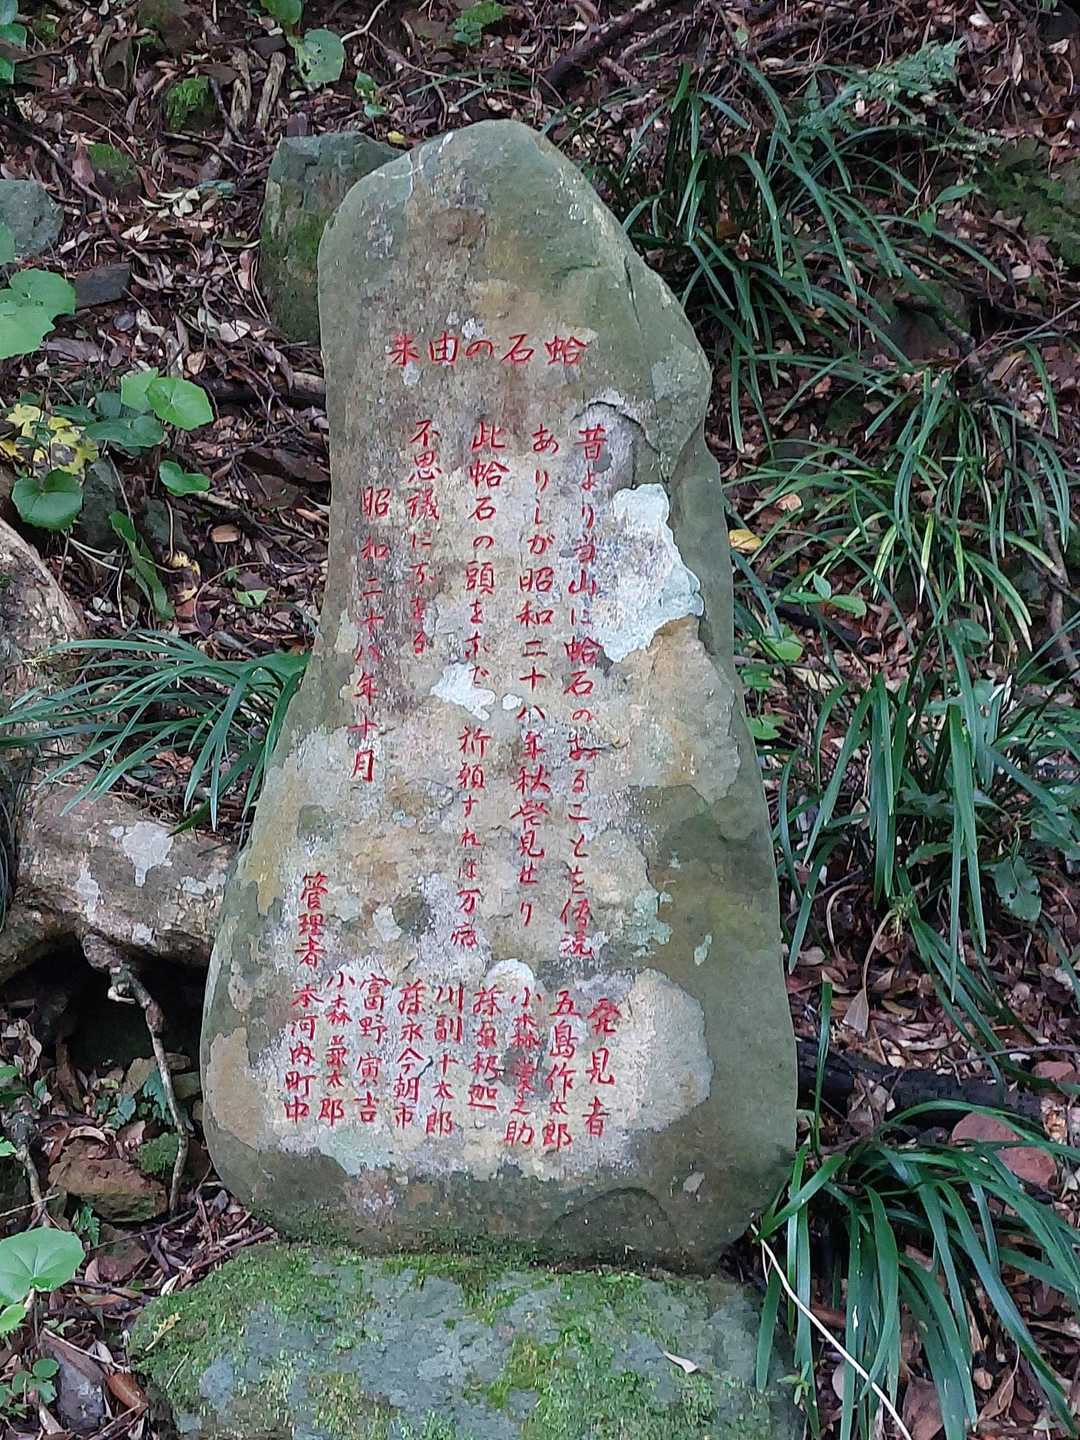 蛤石の由来
昔より当山に蛤石のあることを伝説
ありしが昭和二十八年秋発見せり
此蛤石の頭をなで祈願すれば万病
不思議になをる
昭和二十八年十月
発見者
五島作太郎
小森 之助
川副十太郎
藤永今朝市
富野寅吉
管理者
小森 太郎
本河内町中